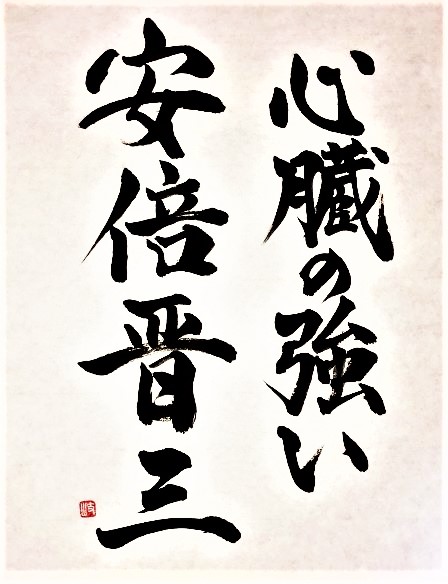 心臓の強い
安倍晋三
岐